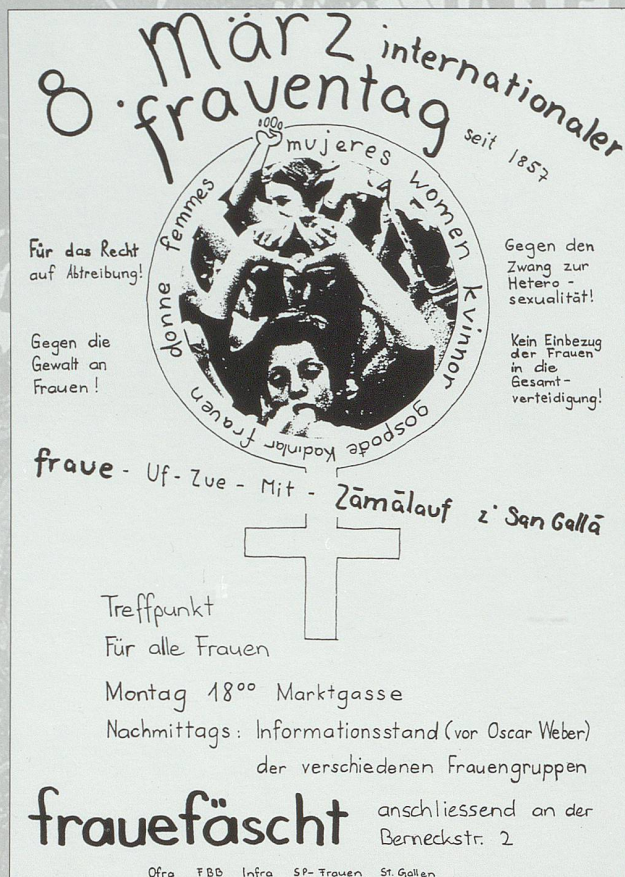 8. März internationaler
frauentag seit 1857
mujeres women kvinnor gospode Kadinlar frauen donne femmes
Für das Recht
auf Abtreibung!
Gegen die
Gewalt an
Frauen!
Gegen den
Zwang zur
Hetero-
sexualität!
Kein Einbezug
der Frauen
in die
Gesamt-
verteidigung!
fraue - Uf - Zue - Mit - Zämälauf z' San Gallä
Treffpunkt
Für alle Frauen
Montag 18⁰⁰ Marktgasse
Nachmittags: Informationsstand (vor Oscar Weber)
der verschiedenen Frauengruppen
frauefäscht anschliessend an der
Berneckstr. 2
Ofra FBB Infra SP-Frauen St. Gallen